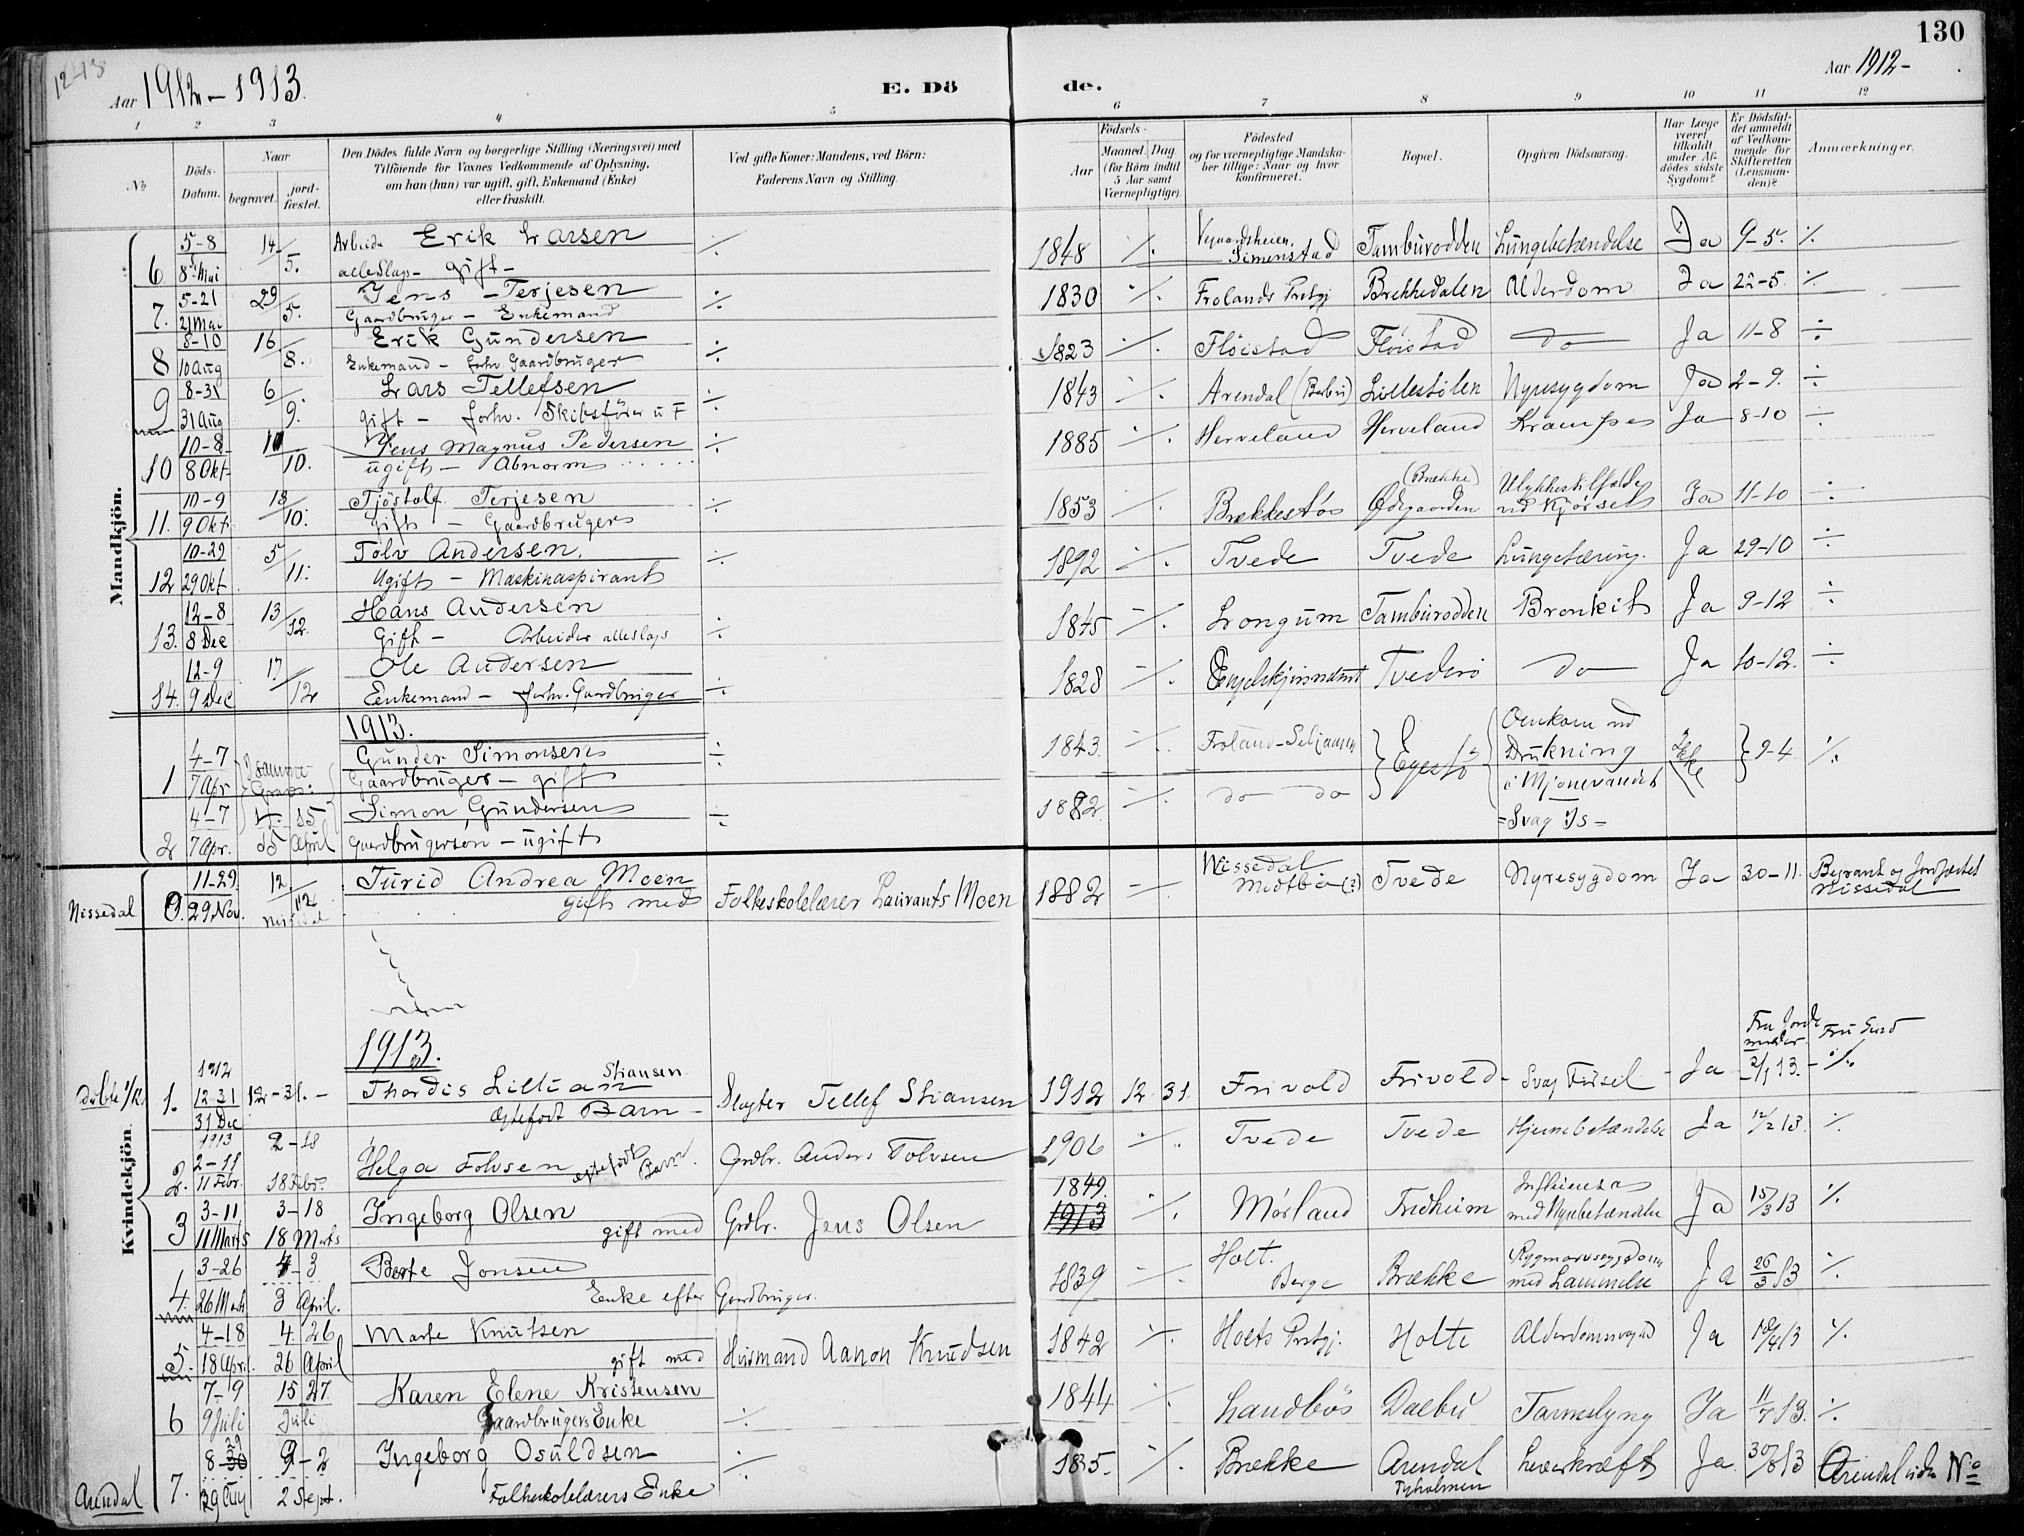 130
12-13
Aar 1912 - 1913.
E. Dö
de.
Aar 1912-
1 2 3 4 5 6 7 8 9 10 11 12
No
Döds-Datum.
Naar
begravet.
jordfæstet.
Den Dödes fulde Navn og borgerlige Stilling (Næringsvei) med
Tilföiende for Voxnes Vedkommende af Oplysning,
om han (hun) var ugift, gift, Enkemand (Enke)
eller fraskilt.
Ved gifte Koner: Mandens, ved Börn:
Faderens Navn og Stilling.
Födsels-
Aar
Maaned. Dag
(for Börn indtil
5 Aar samt
Værnepligtige).
Födested
og for værnepligtige Mandskaber tillige: Naar og hvor
konfirmeret.
Bopæl.
Opgiven Dödsaarsag.
Har Læge
været
tilkaldt
under Afdödes sidste
Sygdom?
Er Dödsfaldet anmeldt
af Vedkommende for
Skifteretten
(Lensmanden)?
Anmærkninger.
Mandkjön.
6. 5-8 8de Mai 14/5. Erik Larsen ÷ 1848 ÷ Vegaardsheien. Simenstad Tamburodden Lungebetendelse Ja 9-5. ÷
alleslags - gift -
7. 5-21 21 Mai 29/5. Jens Terjesen ÷ 1830 ÷ Frolands Prstgj Brekkedalen Alderdom Ja 22-5. ÷
Gaardbruger - Enkemand
8 8-10 10 Aug 16/8. Erik Gundersen ÷ 1823 ÷ Fløistad Fløistad do Ja 11-8 ÷
Enkemand - forhv Gaardbruger
9 8-31 31 Aug 6/9. Lars Tellefsen ÷ 1843 ÷ Arendal (Barbu) Lillestølen Nyresygdom Ja 2-9. ÷
gift - forhv. Skibsfører u F
10 10-8 8 Okt /10. Jens Magnus Pedersen ÷ 1885 ÷ Herveland Herveland Krampe Ja 8-10 ÷
ugift - Abnorm
11. 10-9 9 Okt 18/10. Tjøstolf Terjesen ÷ 1853 ÷ Brækkestø (Brække) Ødegaarden Ulykkestilfælde ved Kjørsel Ja 11-10 ÷
gift - Gaardbruger
12 10-29 29 Okt 5/11. Tolv Andersen. ÷ 1892 ÷ Tvede Tvede Lungetæring. Ja 29-10 ÷
Ugift - Maskinaspirant
13. 12-8 8 Dec 13/12. Hans Andersen ÷ 1845 ÷ Longum Tamburodden Bronkit Ja 9-12 ÷
Gift - Arbeider alleslags
14. 12-9 9 Dec 17/12 Ole Andersen ÷ 1828 ÷ Tvede do Ja 10-12. ÷
Eenkemand - forhv. Gardbruger
1913.
1 4-7 7 Apr I samme Grav: Gunder Simonsen ÷ 1843. ÷ Froland Egestø Omkom ved Drukning i Mjonevandet Ikke 9-4 ÷
Gaardbruger - gift
2 4-7 7 Apr. 15 April Simon Gundersen ÷ 1882 ÷ do do = Svag Is =
Gaardbrugersøn - ugift
Kvindekjön.
Nissedal 0. 11-29 29 Nov. 12/12 Nissedal Turid Andrea Moen Folkeskolelærer Laurants Moen 1882 ÷ Nissedal Midtbø (?) Tvede Nyresygdom Ja 30-11. Begravet og Jordfæstet Nissedal
gift med
1913.
1. 1912 12-31 31 Dec 12-31. - Thordis Lillian Stiansen Slagter Tellef Stiansen 1912 12 31. Frivold Frivold Svag Fødsel Ja 2/1 13. ÷
ægtefødt Barn -
2. 1913 2-11 11 Febr. 2-18 18 Febr. Helga Tolvsen ægtefødt Barn. Grdbr. Anders Tolvsen 1906 ÷ Tvede Tvede Hjernebetændelse Ja 12/2 13. ÷
3 3-11 11 Marts 3-18 18 Marts Ingeborg Olsen Grdbr. Jens Olsen 1849. 1913 ÷ Mørland Fredheim Influensa med Nyrebetændelse Ja 15/3 13 ÷
gift med
4. 3-26 26 Marts 4-3 3 April. Berte Jonsen Gaardbruger. 1839 ÷ Holt. Berge Brække Rygmarvssygdom med Lammelse Ja 26/3 13 ÷
Enke efter
5. 4-18 18 April. 4. 26 26 April Marte Knutsen Husmand Aanon Knudsen 1842 ÷ Holts Prstgj. Holte Alderdomssvaghed Ja /4 13 ÷
gift med
6 7-9 9 Juli 15 27 Juli Karen Elene Kristensen ÷ 1844 ÷ Landbøs Dalbu Tarmslyng Ja 11/7 13. ÷
Gaardbrugers Enke
Arendal 7. 8-30 29 29 Aug 9-2 2 Sept. Ingeborg Osuldsen ÷ 1835. ÷ Brække Arendal Tyholmen Leverkræft Ja 30/8 13 Arendal No
Folkeskolelærers Enke